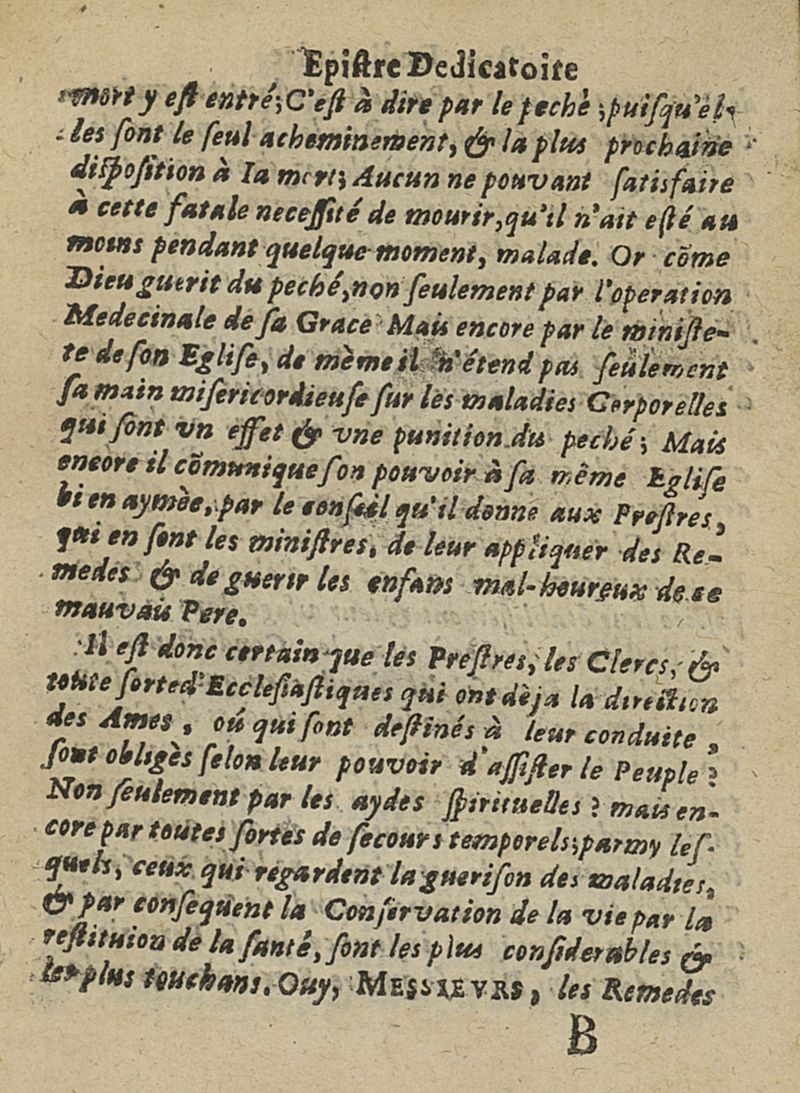 Epiſtre Dedicatoire
mort y eſt entré; C'eſt à dire par le pechè ; puiſqu'el-
les ſont le ſeul acheminement, & la plus prochaine
diſpoſition à la mort; Aucun ne pouvant ſatisfaire
à cette fatale neceſſité de mourir, qu'il n'ait eſté au
moins pendant quelque moment, malade. Or cõme
Dieu guerit du peché, non ſeulement par l'operation
Medecinale de ſa Grace Mais encore par le miniſte-
re de ſon Egliſe, de mème il n'étend pas ſeulement
ſa main miſericordieuſe ſur les maladies Corporelles
qui ſont vn effet & vne punition du peché; Mais
encore il cõmunique ſon pouvoir à ſa même Egliſe
bien aymèe, par le conſeil qu'il donne aux Preſtres,
qui en ſont les miniſtres, de leur appliquer des Re-
medes & de guerir les enfans mal-heureux de ce
mauvais Pere.
Il eſt donc certain que les Preſtres, les Clercs, &
toute ſorte d'Eccleſiaſtiques qui ont dèja la direction
des Ames, oú qui ſont deſtinés à leur conduite,
ſont obligès ſelon leur pouvoir d'aſſiſter le Peuple?
Non ſeulement par les aydes ſpirituelles? mais en-
core par toutes ſortes de ſecours temporels; parmy leſ-
quels, ceux qui regardent la gueriſon des maladies,
& par conſequent la Conſervation de la vie par la
reſtituion de la ſanté, ſont les plus conſiderables &
les plus touchans. Ouy, MESSIEVRS, les Remedes
B